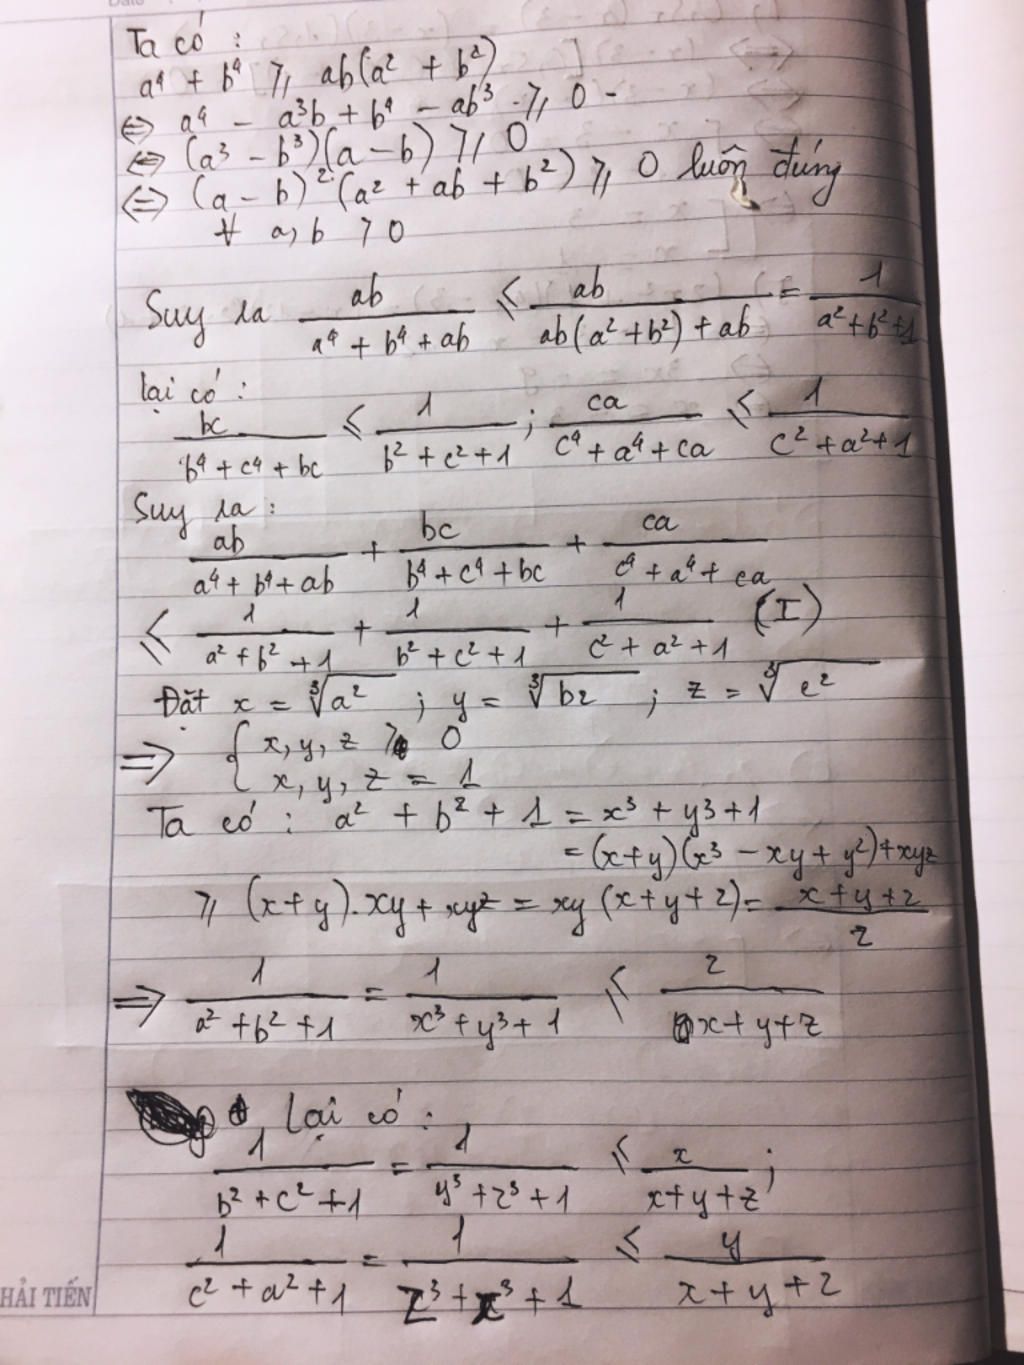 Date
Ta có :
a⁴ + b⁴ ⩾ ab(a² + b²)
⇔ a⁴ - a³b + b⁴ - ab³ ⩾ 0
⇔ (a³ - b³)(a - b) ⩾ 0
⇔ (a - b)²(a² + ab + b²) ⩾ 0 luôn đúng
∀ a, b > 0
Suy ra ab/(a⁴ + b⁴ + ab) ⩽ ab/(ab(a² + b²) + ab) = 1/(a² + b² + 1)
lại có :
bc/(b⁴ + c⁴ + bc) ⩽ 1/(b² + c² + 1) ; ca/(c⁴ + a⁴ + ca) ⩽ 1/(c² + a² + 1)
Suy ra :
ab/(a⁴ + b⁴ + ab) + bc/(b⁴ + c⁴ + bc) + ca/(c⁴ + a⁴ + ca)
⩽ 1/(a² + b² + 1) + 1/(b² + c² + 1) + 1/(c² + a² + 1) (I)
Đặt x = ∛a² ; y = ∛b2 ; z = ∛c²
⇒ { x, y, z > 0
x, y, z = 1
Ta có : a² + b² + 1 = x³ + y3 + 1
= (x+y)(x³ - xy + y²) + xyz
⩾ (x+y).xy + xyz = xy (x + y + z) = (x + y + z)/z
⇒ 1/(a² + b² + 1) = 1/(x³ + y³ + 1) ⩽ z/(x + y + z)
Lại có :
1/(b² + c² + 1) = 1/(y³ + z³ + 1) ⩽ x/(x + y + z) ;
1/(c² + a² + 1) = 1/(z³ + x³ + 1) ⩽ y/(x + y + z)
HẢI TIẾN